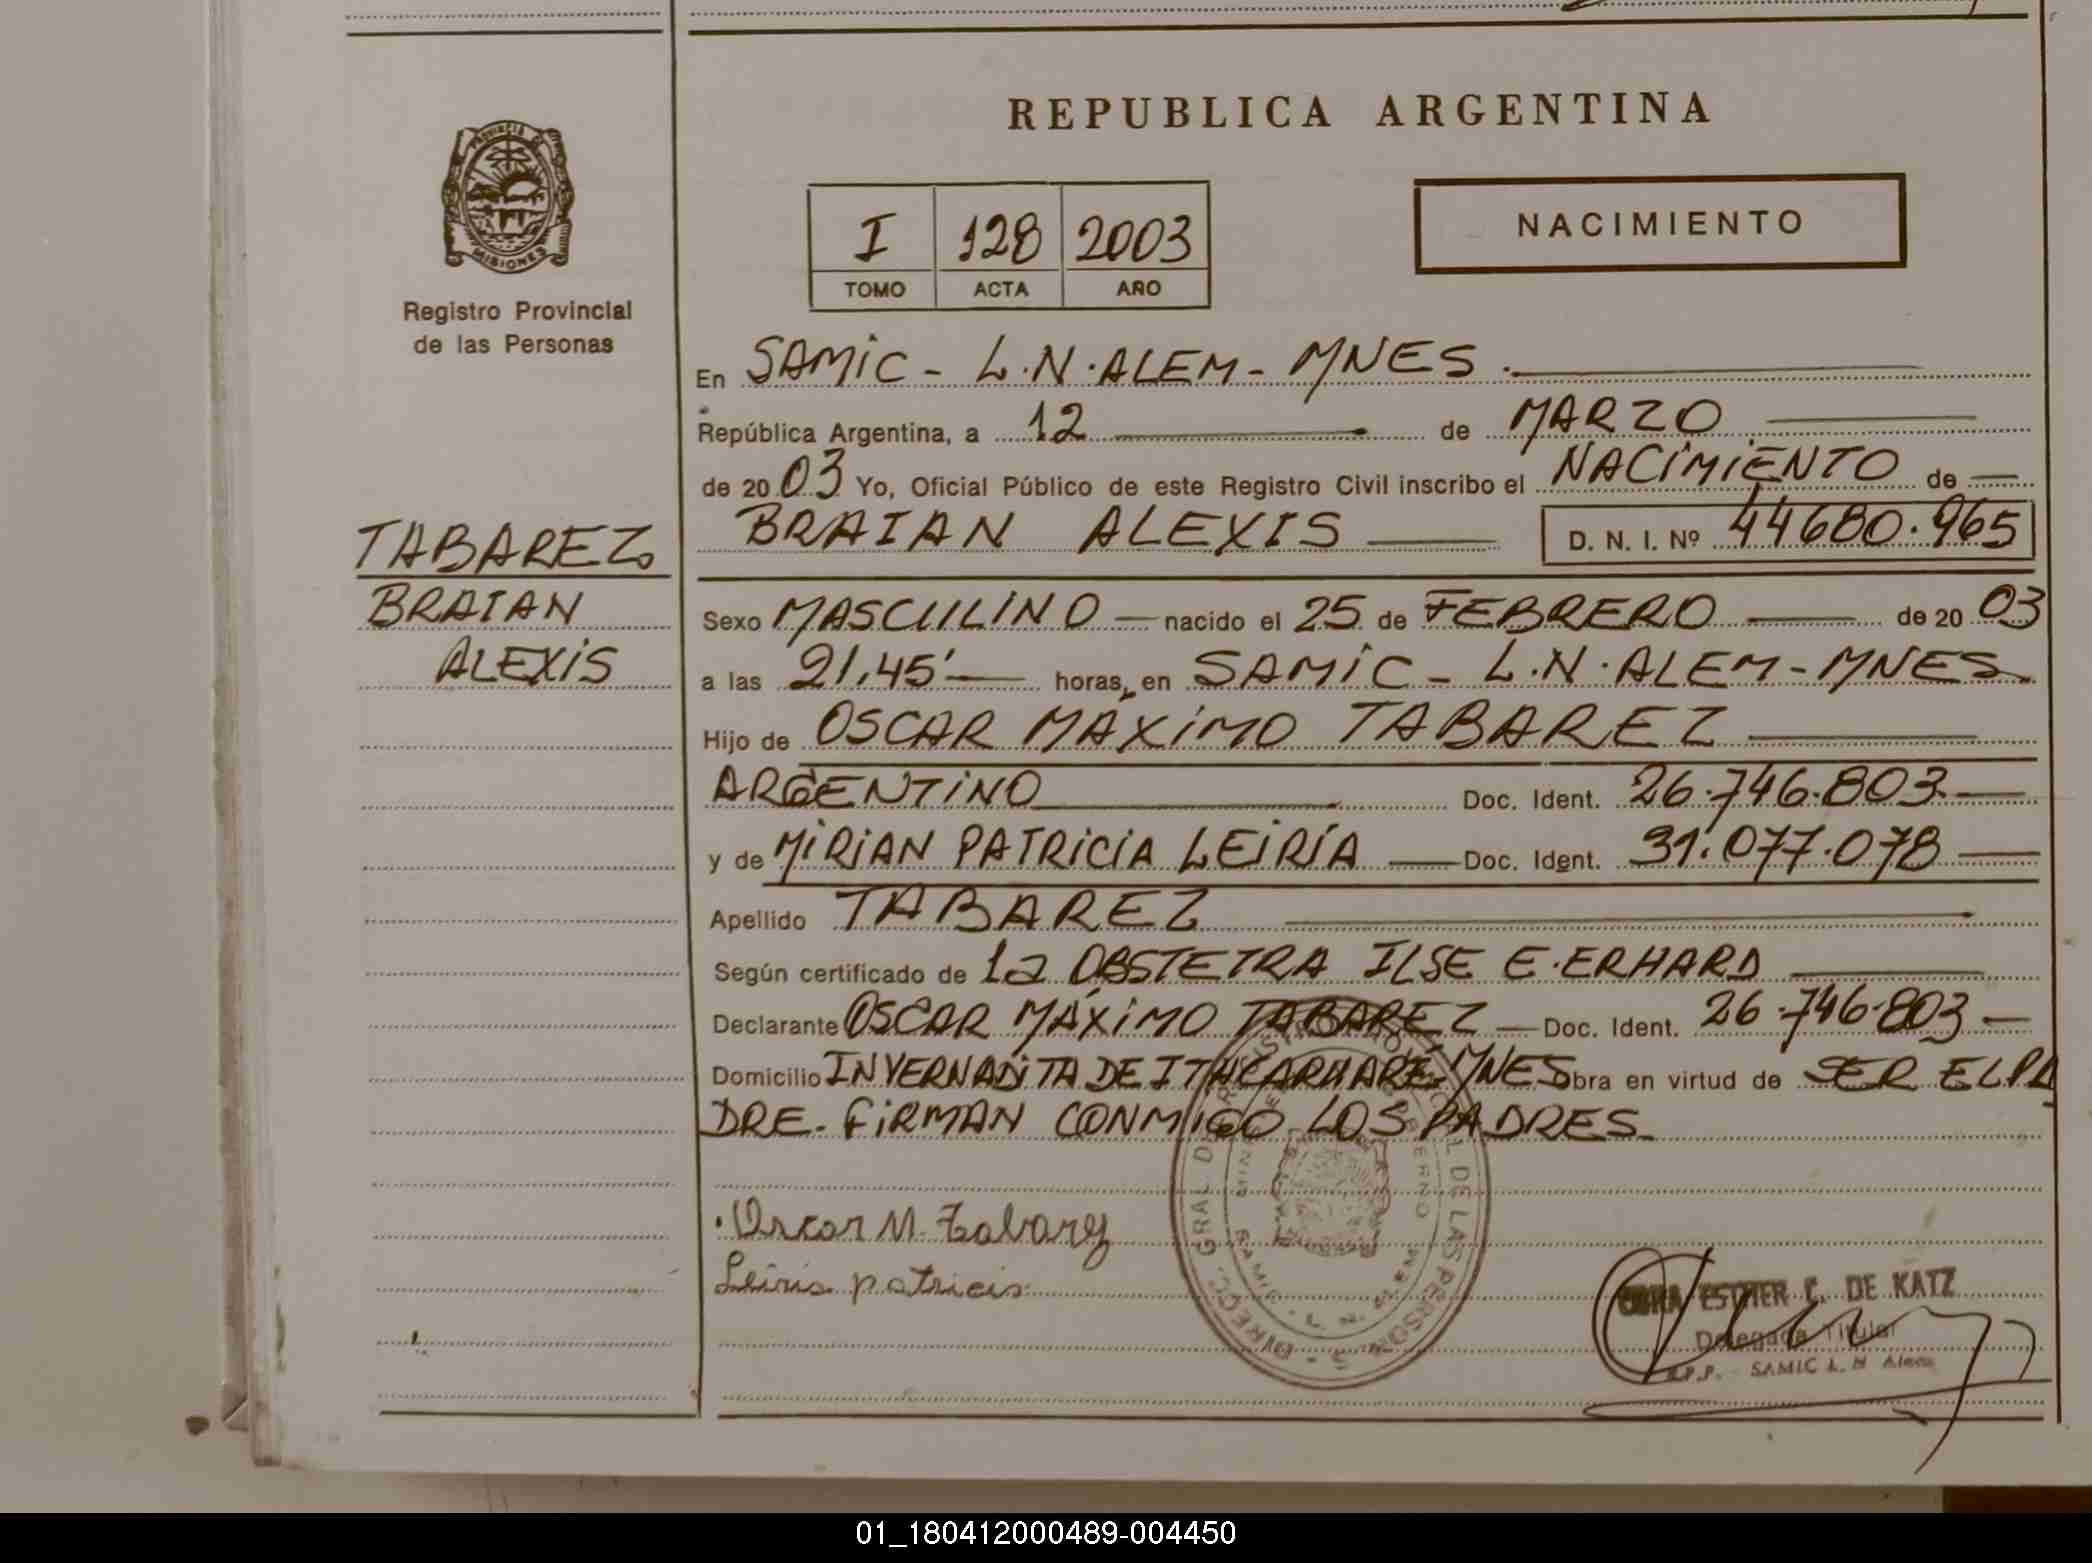 REPUBLICA ARGENTINA
PROVINCIA DE MISIONES
Registro Provincial
de las Personas
I 128 2003
TOMO ACTA AÑO
NACIMIENTO
En SAMIC - L.N. ALEM - MNES.
República Argentina, a 12 de MARZO
de 2003 Yo, Oficial Público de este Registro Civil inscribo el NACIMIENTO de
BRAIAN ALEXIS D. N. I. Nº 44680.965
TABAREZ
BRAIAN
ALEXIS
Sexo MASCULINO nacido el 25 de FEBRERO de 2003
a las 21,45' horas, en SAMIC - L.N. ALEM - MNES
Hijo de OSCAR MÁXIMO TABAREZ
ARGENTINO Doc. Ident. 26.746.803
y de MIRIAN PATRICIA LEIRÍA Doc. Ident. 31.077.078
Apellido TABAREZ
Según certificado de la OBSTETRA ILSE E. ERHARD
Declarante OSCAR MÁXIMO TABAREZ Doc. Ident. 26.746.803
Domicilio INVERNADITA DE MNES Obra en virtud de SER EL PA
DRE. FIRMAN CONMIGO LOS PADRES
Oscar M. Tabarez
Leiria patricia
DE LAS PERSONAS
SAMIC - L. N. ALEM
ESTHER C. DE KATZ
Delegada Titular
R.P.P. - SAMIC L. N Alem
01_180412000489-004450